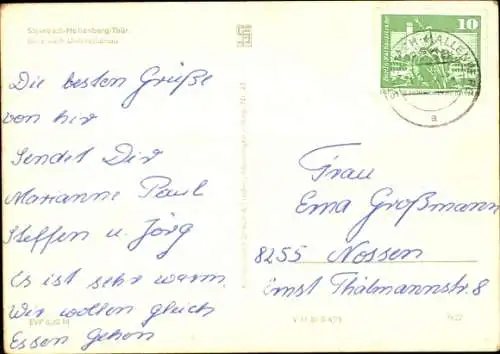 Steinbach-Hallenberg/Thür.
Blick nach Unterschönau
Die besten Grüße
von hir
Sendet Dir
Marianne Paul
Steffen u. Jörg
Es ist sehr warm.
Wir wollen gleich
Essen gehen
EVP 0,20 M
10
HALLENBERG
a
Frau
Erna Großmann
8255 Nossen
Ernst Thälmannstr. 8